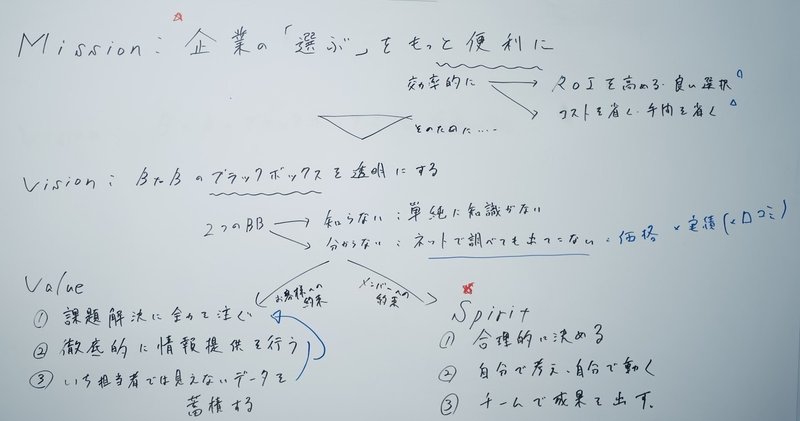 Mission: 企業の「選ぶ」をもっと便利に
効率的に
ROIを高める・良い選択
コストを省く・手間を省く
そのために....
Vision: BtoBのブラックボックスを透明にする
2つのBB
知らない:単純に知識がない
分からない:ネットで調べても出てこない・価格 × 実績(×口コミ)
Value
お客様への約束
① 課題解決に全力で注ぐ
② 徹底的に情報提供を行う
③ いち担当者では見えないデータを
蓄積する
メンバーへの約束
Spirit
① 合理的に決める
② 自分で考え、自分で動く
③ チームで成果を出す。